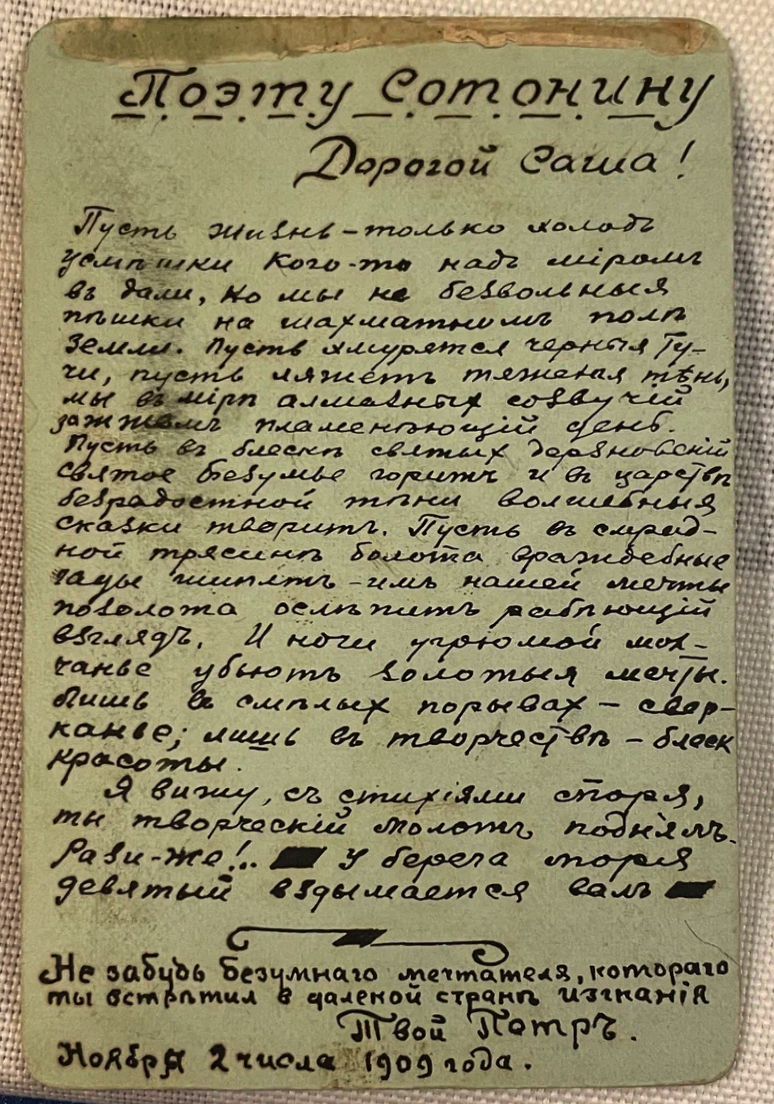 Поэту Сотонину
Дорогой Саша!
Пусть жизнь – только холодъ
усмѣшки Кого-то надъ міромъ
въ дали, но мы не безвольныя
пѣшки на шахматномъ полѣ
земли. Пусть хмурятся черныя Ту-
чи, пусть ляжетъ тяжелая тѣнь,
мы въ мірѣ алмазныхъ созвучій
зажжемъ пламенѣющій день.
Пусть въ блескѣ святыхъ дерзновеній
святое безумье горитъ и въ царствѣ
безрадостной тѣни волшебныя
сказки творитъ. Пусть въ смрад-
ной трясинѣ болота враждебные
гады шипятъ – имъ нашей мечты
позолота ослѣпитъ рабѣющій
взглядъ. И ночи угрюмой мол-
чанье убьютъ золотыя мечты.
Лишь въ смѣлыхъ порывах – свер-
канье; лишь въ творчествѣ – блеск
красоты.
Я вижу, съ стихіями споря,
ты творческій молотъ поднялъ.
Рази-же!.. У берега моря
девятый вздымается валъ
Не забудь безумнаго мечтателя, котораго
ты встрѣтил в далекой странѣ изгнанія
Твой Петръ.
Ноября 2 числа 1909 года.